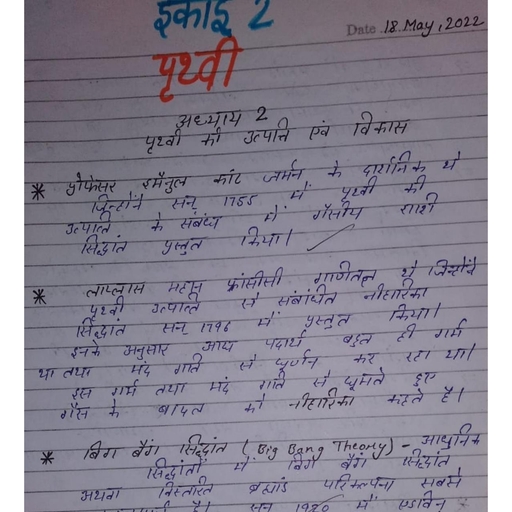 इकाई 2
Date 18. May, 2022
पृथ्वी
अध्याय 2
पृथ्वी की उत्पत्ति एवं विकास
* प्रोफेसर इमैनुल कांट जर्मन के दार्शनिक थे
जिन्होंने सन् 1755 में पृथ्वी की
उत्पत्ति के संबंध में गैसीय राशी
सिद्धांत प्रस्तुत किया।
* लाप्लास महान फ्रांसीसी गणितज्ञ थे जिन्होंने
पृथ्वी उत्पत्ति से संबंधित नीहारिका
सिद्धांत सन् 1796 में प्रस्तुत किया।
इनके अनुसार आद्य पदार्थ बहुत ही गर्म
था तथा मंद गति से घूर्णन कर रहा था।
इस गर्म तथा मंद गति से घूमते हुए
गैस के बादल को नीहारिका कहते है।
* बिग बैंग सिद्धांत (Big Bang Theory) - आधुनिक
सिद्धांतों में बिग बैंग सिद्धांत
अथवा विस्तारित ब्रह्मांड परिकल्पना सबसे
है। सन् 1920 में एडविन